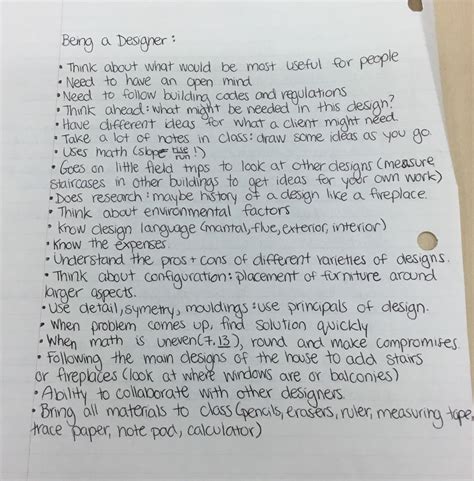 Being a Designer:
• Think about what would be most useful for people
• Need to have an open mind
• Need to follow building codes and regulations
• Think ahead: what might be needed in this design?
• Have different ideas for what a client might need.
• Take a lot of notes in class: draw some ideas as you go.
• Uses math (slope rise/run!)
• Goes on little field trips to look at other designs (measure
staircases in other buildings to get ideas for your own work)
• Does research: maybe history of a design like a fireplace.
• Think about environmental factors
• Know design language (mantal, flue, exterior, interior)
• Know the expenses.
• Understand the pros + cons of different varieties of designs.
• Think about configuration: placement of furniture around
larger aspects.
• Use detail, symetry, mouldings: use principals of design.
• When problem comes up, find solution quickly
• When math is uneven (7.13), round and make compromises.
• Following the main designs of the house to add stairs
or fireplaces (look at where windows are or balconies)
• Ability to collaborate with other designers.
• Bring all materials to class (pencils, erasers, ruler, measuring tape,
trace paper, note pad, calculator)